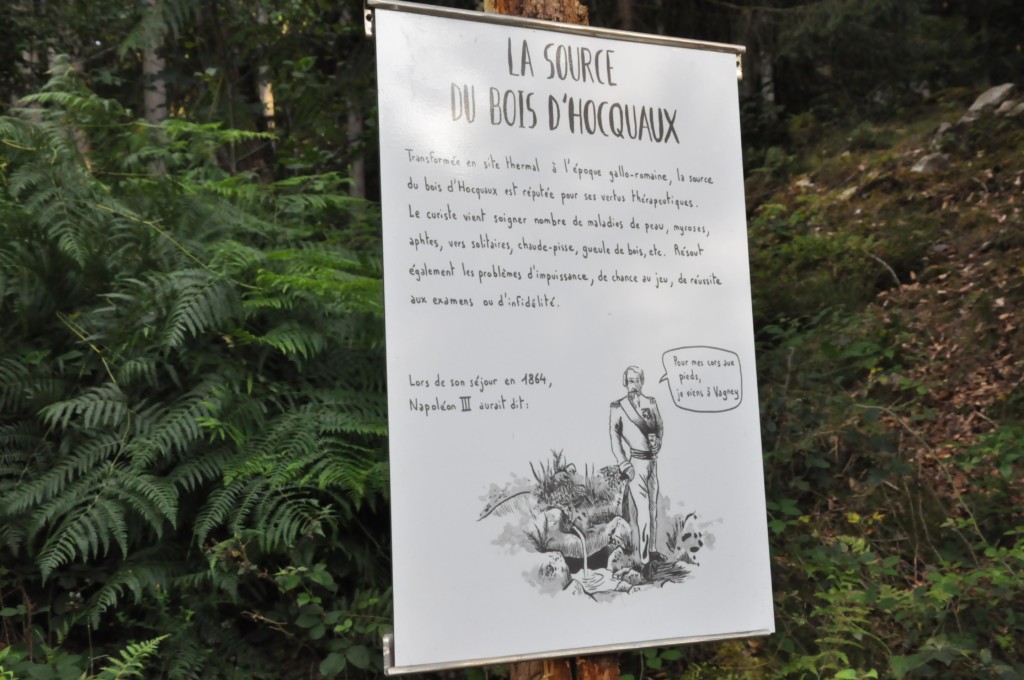 LA SOURCE
DU BOIS D'HOCQUAUX
Transformée en site thermal à l'époque gallo-romaine, la source
du bois d'Hocquaux est réputée pour ses vertus thérapeutiques.
Le curiste vient soigner nombre de maladies de peau, mycoses,
aphtes, vers solitaires, chaude-pisse, gueule de bois, etc. Résout
également les problèmes d'impuissance, de chance au jeu, de réussite
aux examens ou d'infidélité.
Lors de son séjour en 1864,
Napoléon III aurait dit:
Pour mes cors aux
pieds,
je viens à Vagney